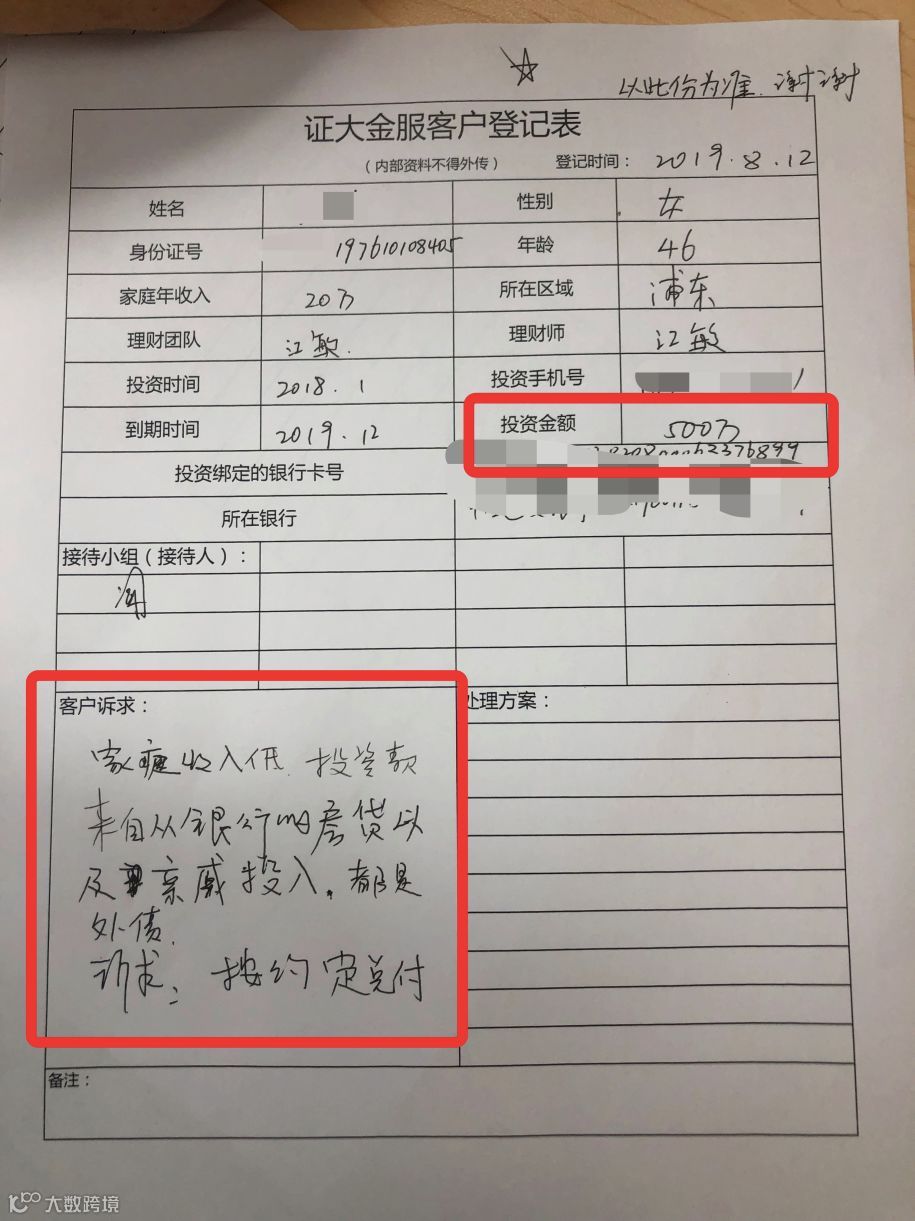 以此份为准,谢谢
证大金服客户登记表
(内部资料不得外传) 登记时间: 2019.8.12
姓名 性别 女
身份证号 197610108405 年龄 46
家庭年收入 20万 所在区域 浦东
理财团队 江敏. 理财师 江敏
投资时间 2018.1 投资手机号
到期时间 2019.12 投资金额 500万
投资绑定的银行卡号
所在银行
接待小组(接待人):
客户诉求: 处理方案:
家庭收入低.投资款
来自从银行的房贷以
及亲戚投入.都是
外债.
诉求: 按约定兑付
备注:
大数跨境